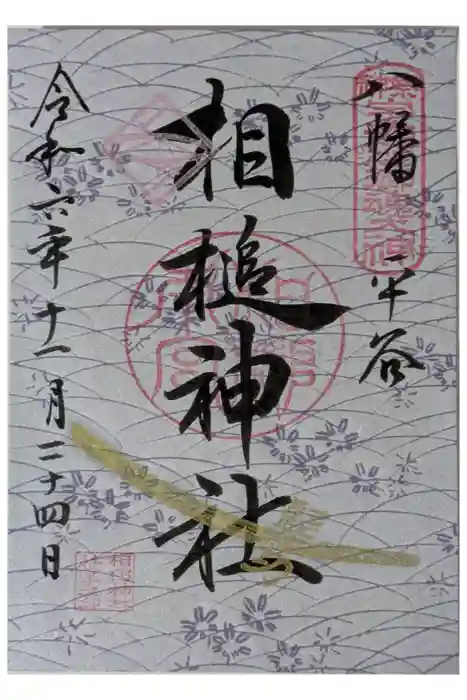 八幡平谷
相槌神社
令和六年十一月二十四日